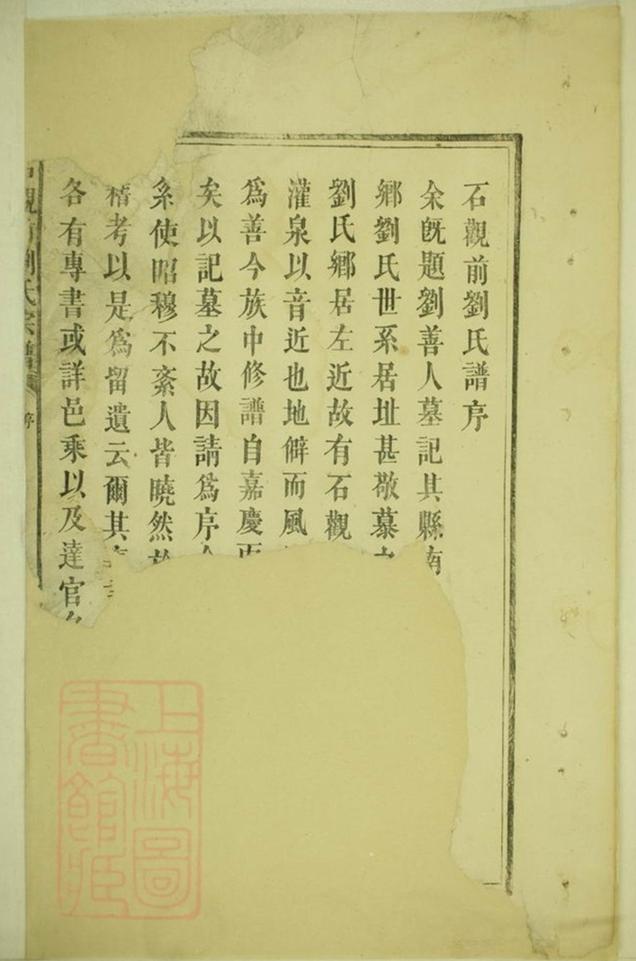 石觀前劉氏譜序
余旣題劉善人墓記其縣南
鄉劉氏世系居址甚敬慕
劉氏鄉居左近故有石觀
灌泉以音近也地僻而風
爲善今族中修譜自嘉慶丙
矣以記墓之故因請爲序
系使昭穆不紊人皆曉然於
稽考以是爲留遺云爾其
各有專書或詳邑乘以及達官
觀前劉氏宗譜 序
上海圖書館藏